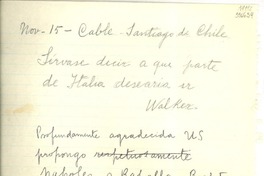 Nov. 15 - Cable - Santiago de Chile
Sírvase decir a que parte
de Italia desearía ir
Walker.
Profundamente agradecida US
propongo respetuosamente
Nápoles o Rapallo